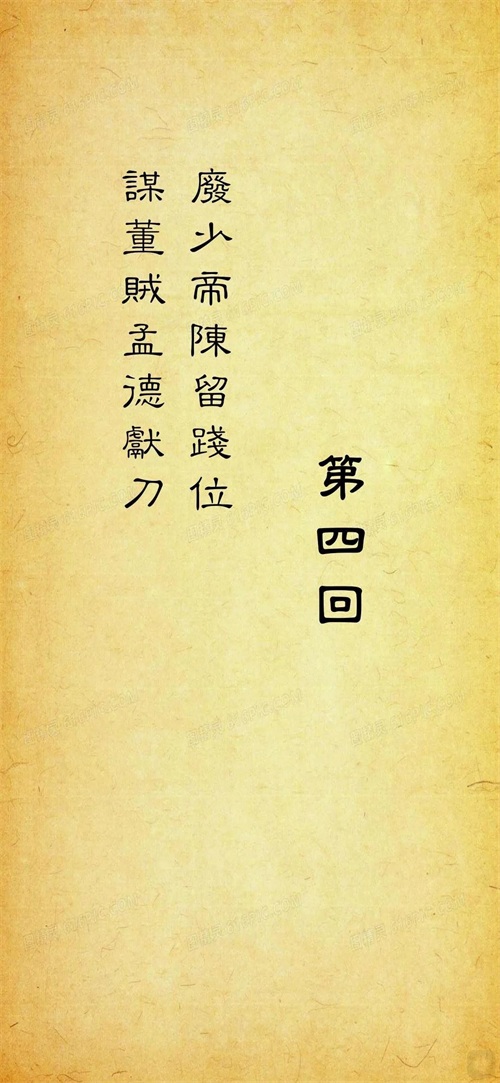 第四回
廢少帝陳留踐位
謀董賊孟德獻刀